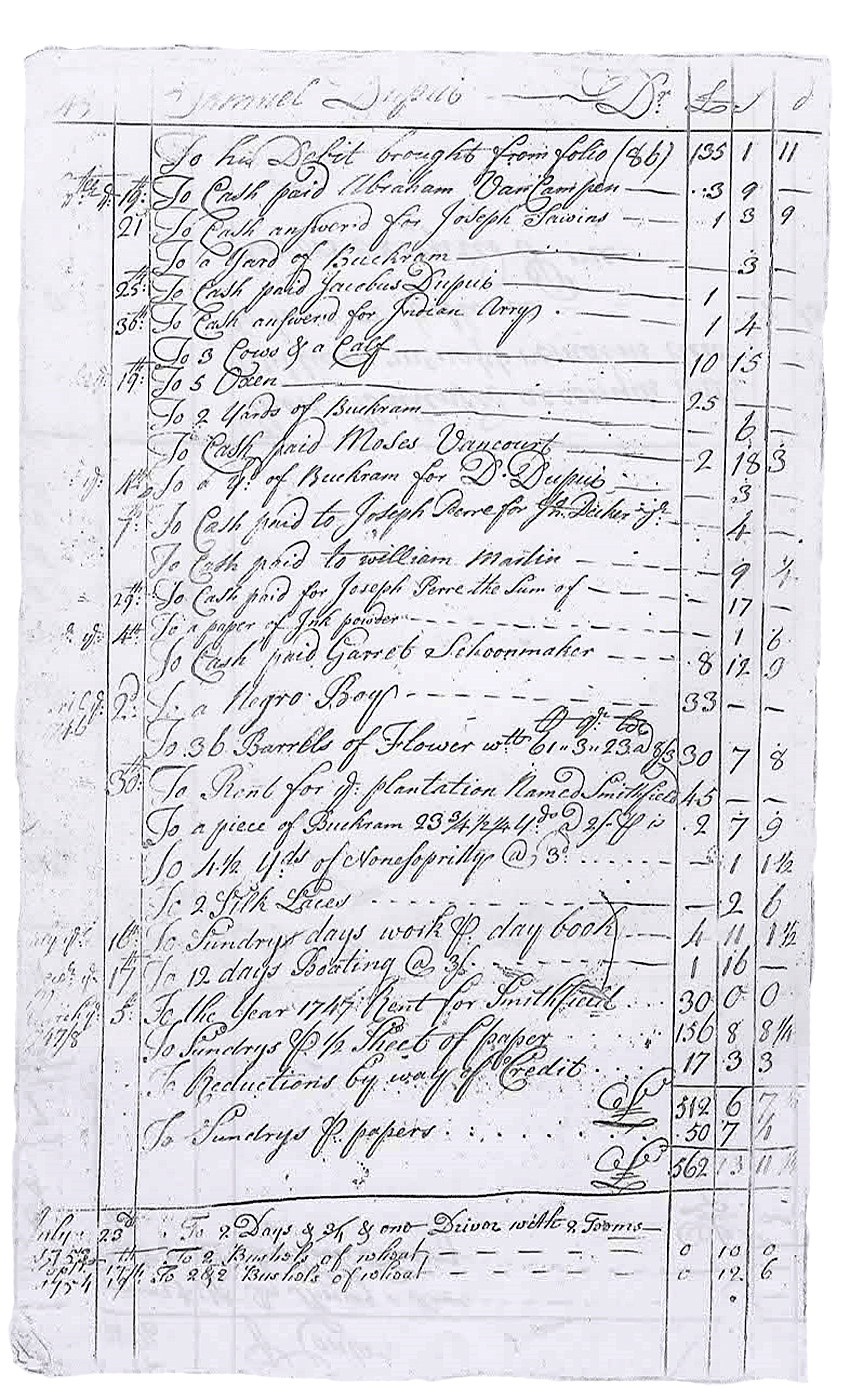 Samuel Dupui Dr £ s d
To his Debit brought from folio (86) 135 1 11
19th To Cash paid Abraham VanCampen 3 9 —
21 To Cash answerd for Joseph Sawins 1 3 9
To a Yard of Buckram — 3 —
25th To Cash paid Jacobus Dupuis 1 — —
30th To Cash answerd for Indian Arry 1 4 —
To 3 Cows & a Calf 10 15 —
19th To 5 Oxen 25 — —
To 2 Yards of Buckram — 6 —
To Cash paid Moses Vancourt 2 18 3
4th To a yd of Buckram for D. Dupuis — 3 —
7th To Cash paid to Joseph Perre for Jn. Decker — 4 —
To Cash paid to william Martin — 9
29th To Cash paid for Joseph Perre the Sum of — 17 —
To a paper of Ink powder — 1 6
4th To Cash paid Garret Schoonmaker 8 12 9
2d To a Negro Boy 33 — —
To 36 Barrells of Flower wtt 61 " 3 " 23 a 8/3 30 7 8
30th To Rent for ye plantation Named Smithfield 45 — —
To a piece of Buckram 23 3/4 1/2 1/4 yds @ 2/ P is 2 7 9
To 4 1/2 yds of Nonesopritty @ 3d — 1 1 1/2
To 2 Silk Laces — 2 6
16th To Sundrys days work P day book 4 11 1 1/2
17th To 12 days Boating @ 3/ 1 16 —
March ye 5th To the Year 1747 Rent for Smithfield 30 0 0
47/8 To Sundrys P 1/2 Sheet of paper 156 8 8 1/4
To Reductions by way of Credit 17 3 3
£ 512 6 7
To Sundrys P papers 50 7
£ 562 13 11
July 23d To 2 Days & 3/4 & one Driver with 2 Teems
1753 To 2 Bushels of wheat 0 10 0
1754 To 2 & 2 Bushels of wheat 0 12 6